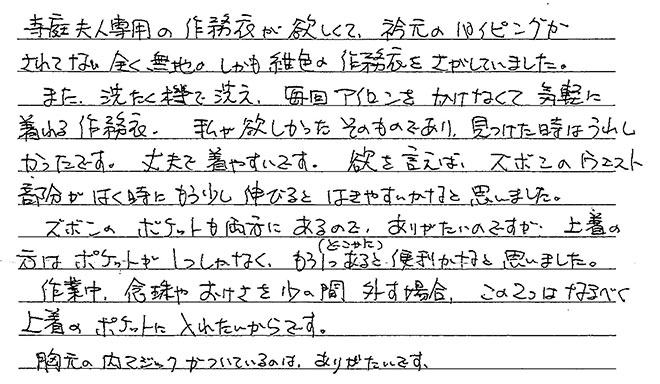 寺庭夫人専用の作務衣が欲しくて、衿元のパイピングが
されてない全く無地のしかも紺色の作務衣をさがしていました。
また、洗たく機で洗え、毎回アイロンをかけなくて気軽に
着れる作務衣。私が欲しかったそのものであり、見つけた時はうれし
かったです。丈夫で着やすいです。欲を言えば、ズボンのウエスト
部分がはく時にもう少し伸びるとはきやすいかなと思いました。
ズボンのポケットも両方にあるので、ありがたいのですが、上着の
方はポケットが1つしかなく、もう1つ(どこかに)あると便利かなと思いました。
作業中、念珠やおけさを少の間外す場合、この2つはなるべく
上着のポケットに入れたいからです。
胸元の内マジックがついているのは、ありがたいです、